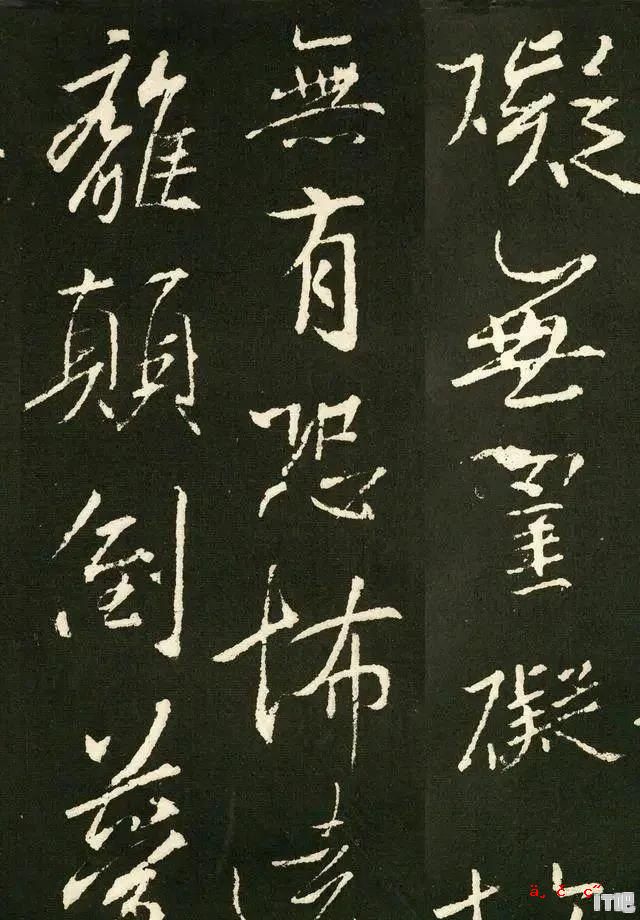 礙無罣礙
無有恐怖遠
離顛倒夢